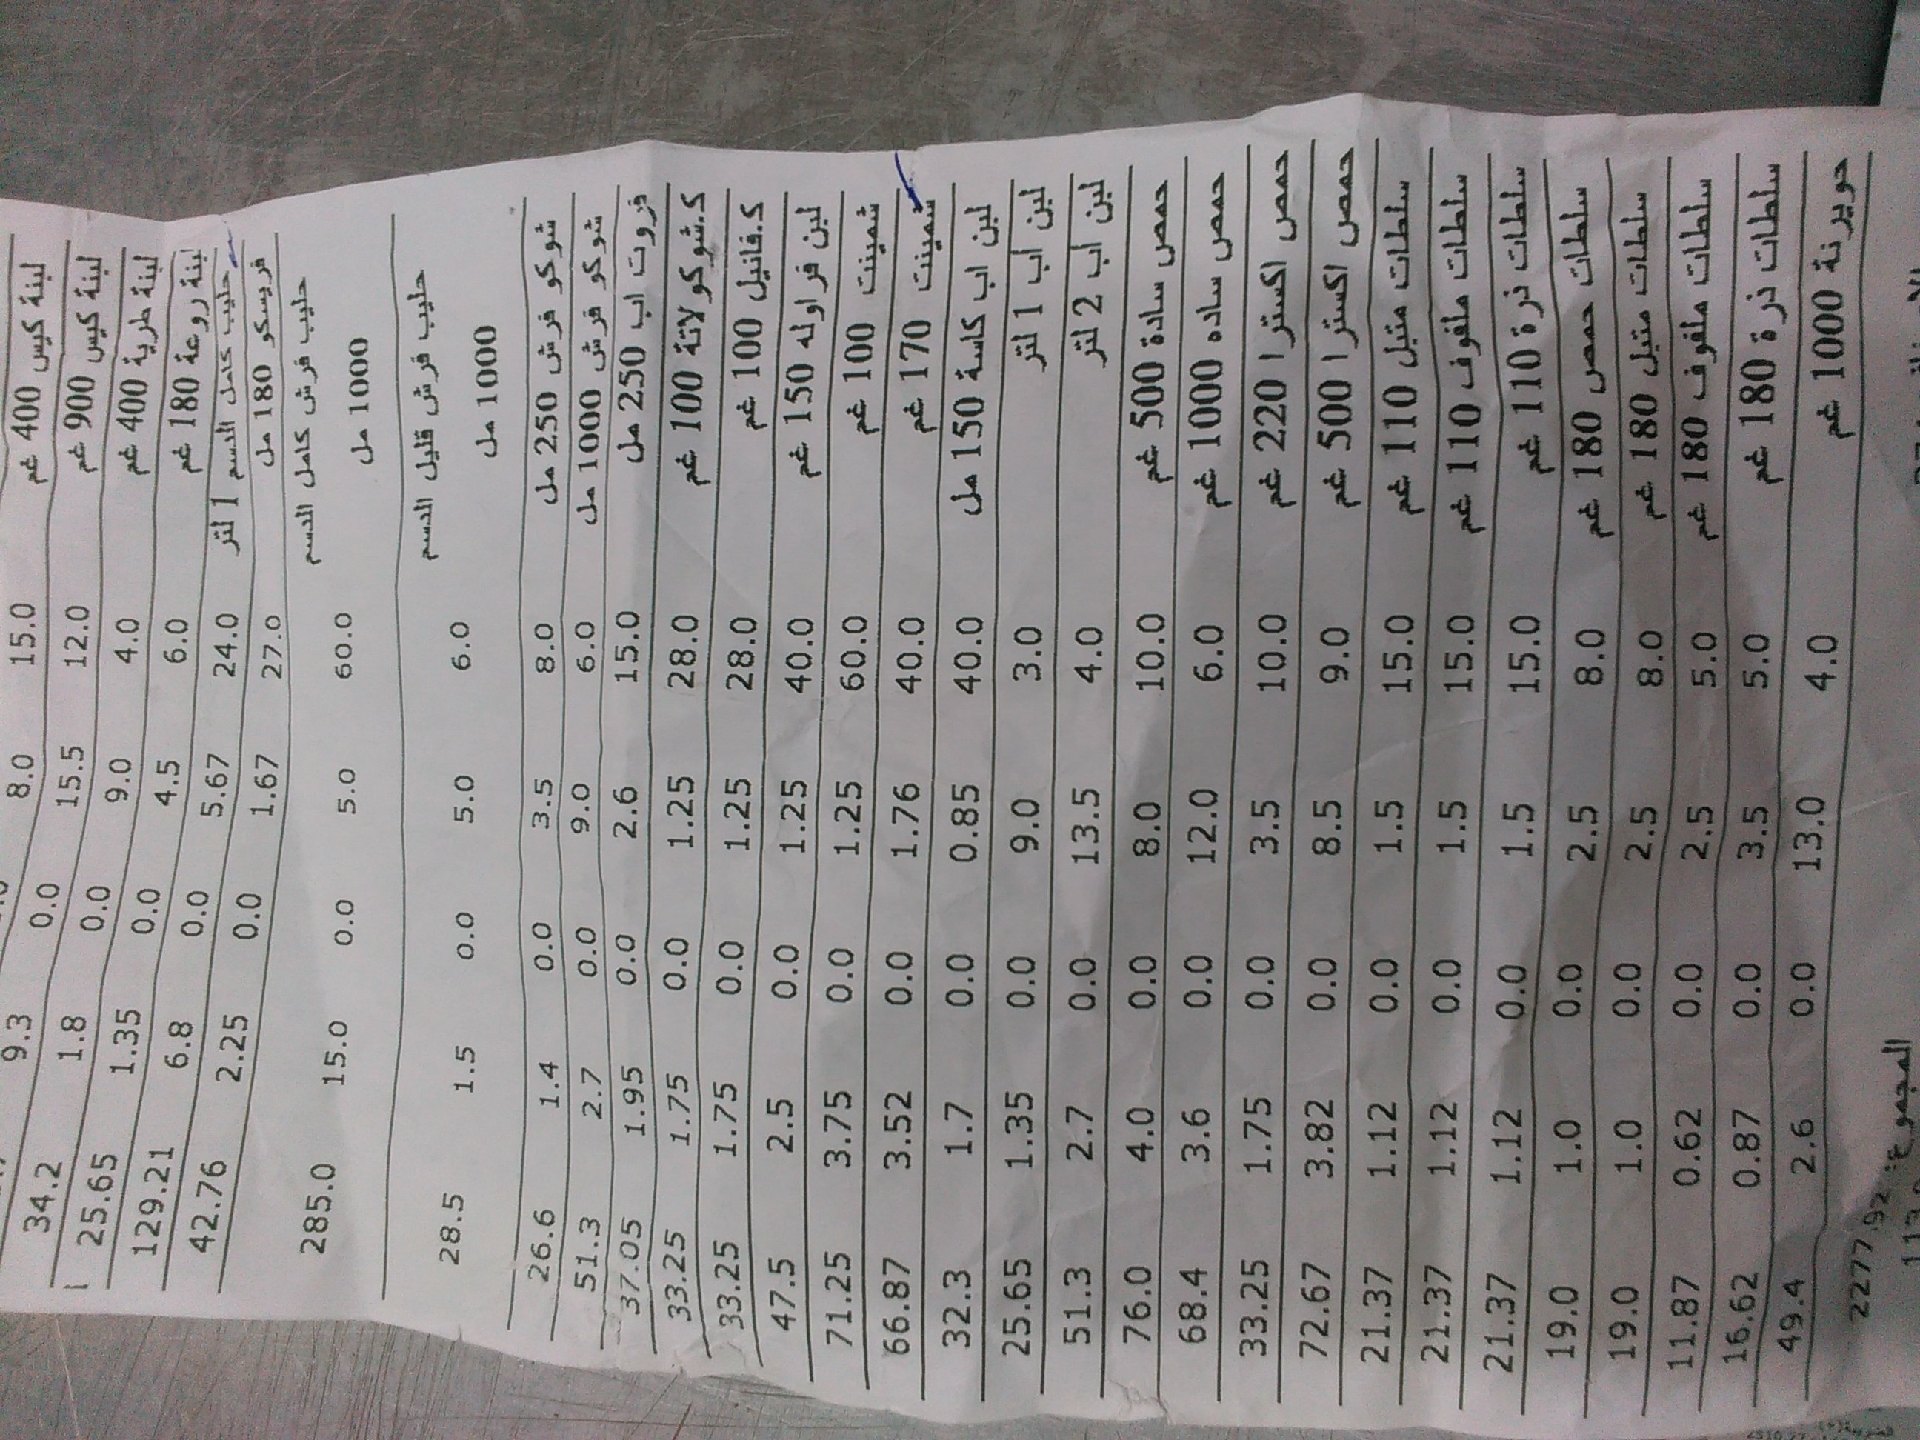 لبنة كيس 400 غم 15.0 8.0
لبنة كيس 900 غم 12.0 15.5 0.0 9.3
لبنة طرية 400 غم 4.0 9.0 0.0 1.8 34.2
لبنة روعة 180 غم 6.0 4.5 0.0 1.35 25.65
حليب كامل الدسم 1 لتر 24.0 5.67 0.0 6.8 129.21
فريسكو 180 مل 27.0 1.67 0.0 2.25 42.76
حليب فرش كامل الدسم
1000 مل 60.0 5.0 0.0 15.0 285.0
حليب فرش قليل الدسم
1000 مل 6.0 5.0 0.0 1.5 28.5
شوكو فرش 250 مل 8.0 3.5 0.0 1.4 26.6
شوكو فرش 1000 مل 6.0 9.0 0.0 2.7 51.3
فروت اب 250 مل 15.0 2.6 0.0 1.95 37.05
ك.شوكولاتة 100 غم 28.0 1.25 0.0 1.75 33.25
ك.فانيل 100 غم 28.0 1.25 0.0 1.75 33.25
لبن فراوله 150 غم 40.0 1.25 0.0 2.5 47.5
شمينت 100 غم 60.0 1.25 0.0 3.75 71.25
شمينت 170 غم 40.0 1.76 0.0 3.52 66.87
لبن اب كاسة 150 مل 40.0 0.85 0.0 1.7 32.3
لبن اب 1 لتر 3.0 9.0 0.0 1.35 25.65
لبن اب 2 لتر 4.0 13.5 0.0 2.7 51.3
حمص سادة 500 غم 10.0 8.0 0.0 4.0 76.0
حمص ساده 1000 غم 6.0 12.0 0.0 3.6 68.4
حمص اكسترا 220 غم 10.0 3.5 0.0 1.75 33.25
حمص اكسترا 500 غم 9.0 8.5 0.0 3.82 72.67
سلطات متبل 110 غم 15.0 1.5 0.0 1.12 21.37
سلطات ملفوف 110 غم 15.0 1.5 0.0 1.12 21.37
سلطات ذرة 110 غم 15.0 1.5 0.0 1.12 21.37
سلطات حمص 180 غم 8.0 2.5 0.0 1.0 19.0
سلطات متبل 180 غم 8.0 2.5 0.0 1.0 19.0
سلطات ملفوف 180 غم 5.0 2.5 0.0 0.62 11.87
سلطات ذرة 180 غم 5.0 3.5 0.0 0.87 16.62
حويرنة 1000 غم 4.0 13.0 0.0 2.6 49.4
المجموع: 2277.92